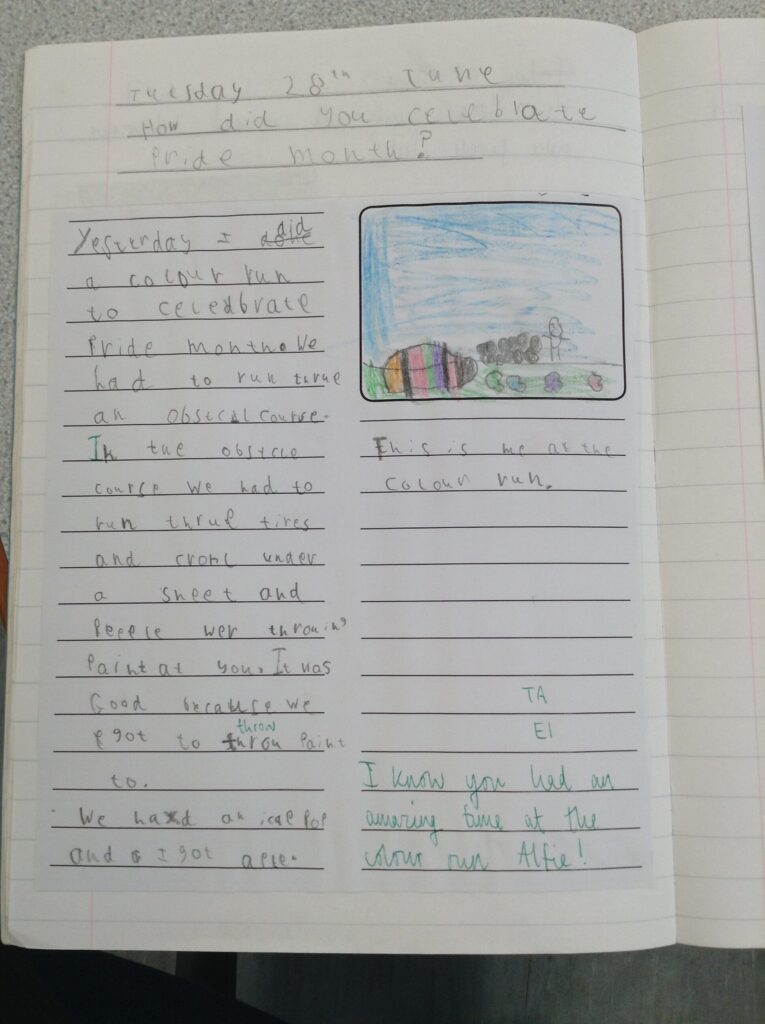 Tuesday 28th June
How did you celebrate
Pride month?
Yesterday I did
a colour run
to celedbrate
Pride month. We
had to run thrue
an obstcal course.
In the obstcle
course we had to
run thrue tires
and croml under
a sheet and
Peeple wer throuing
Paint at you. It was
Good because we
got to throw Paint
to.
We had an
and I got
This is me at the
colour run.
TA
EI
I know you had an
amazing time at the
colour run Alfie!